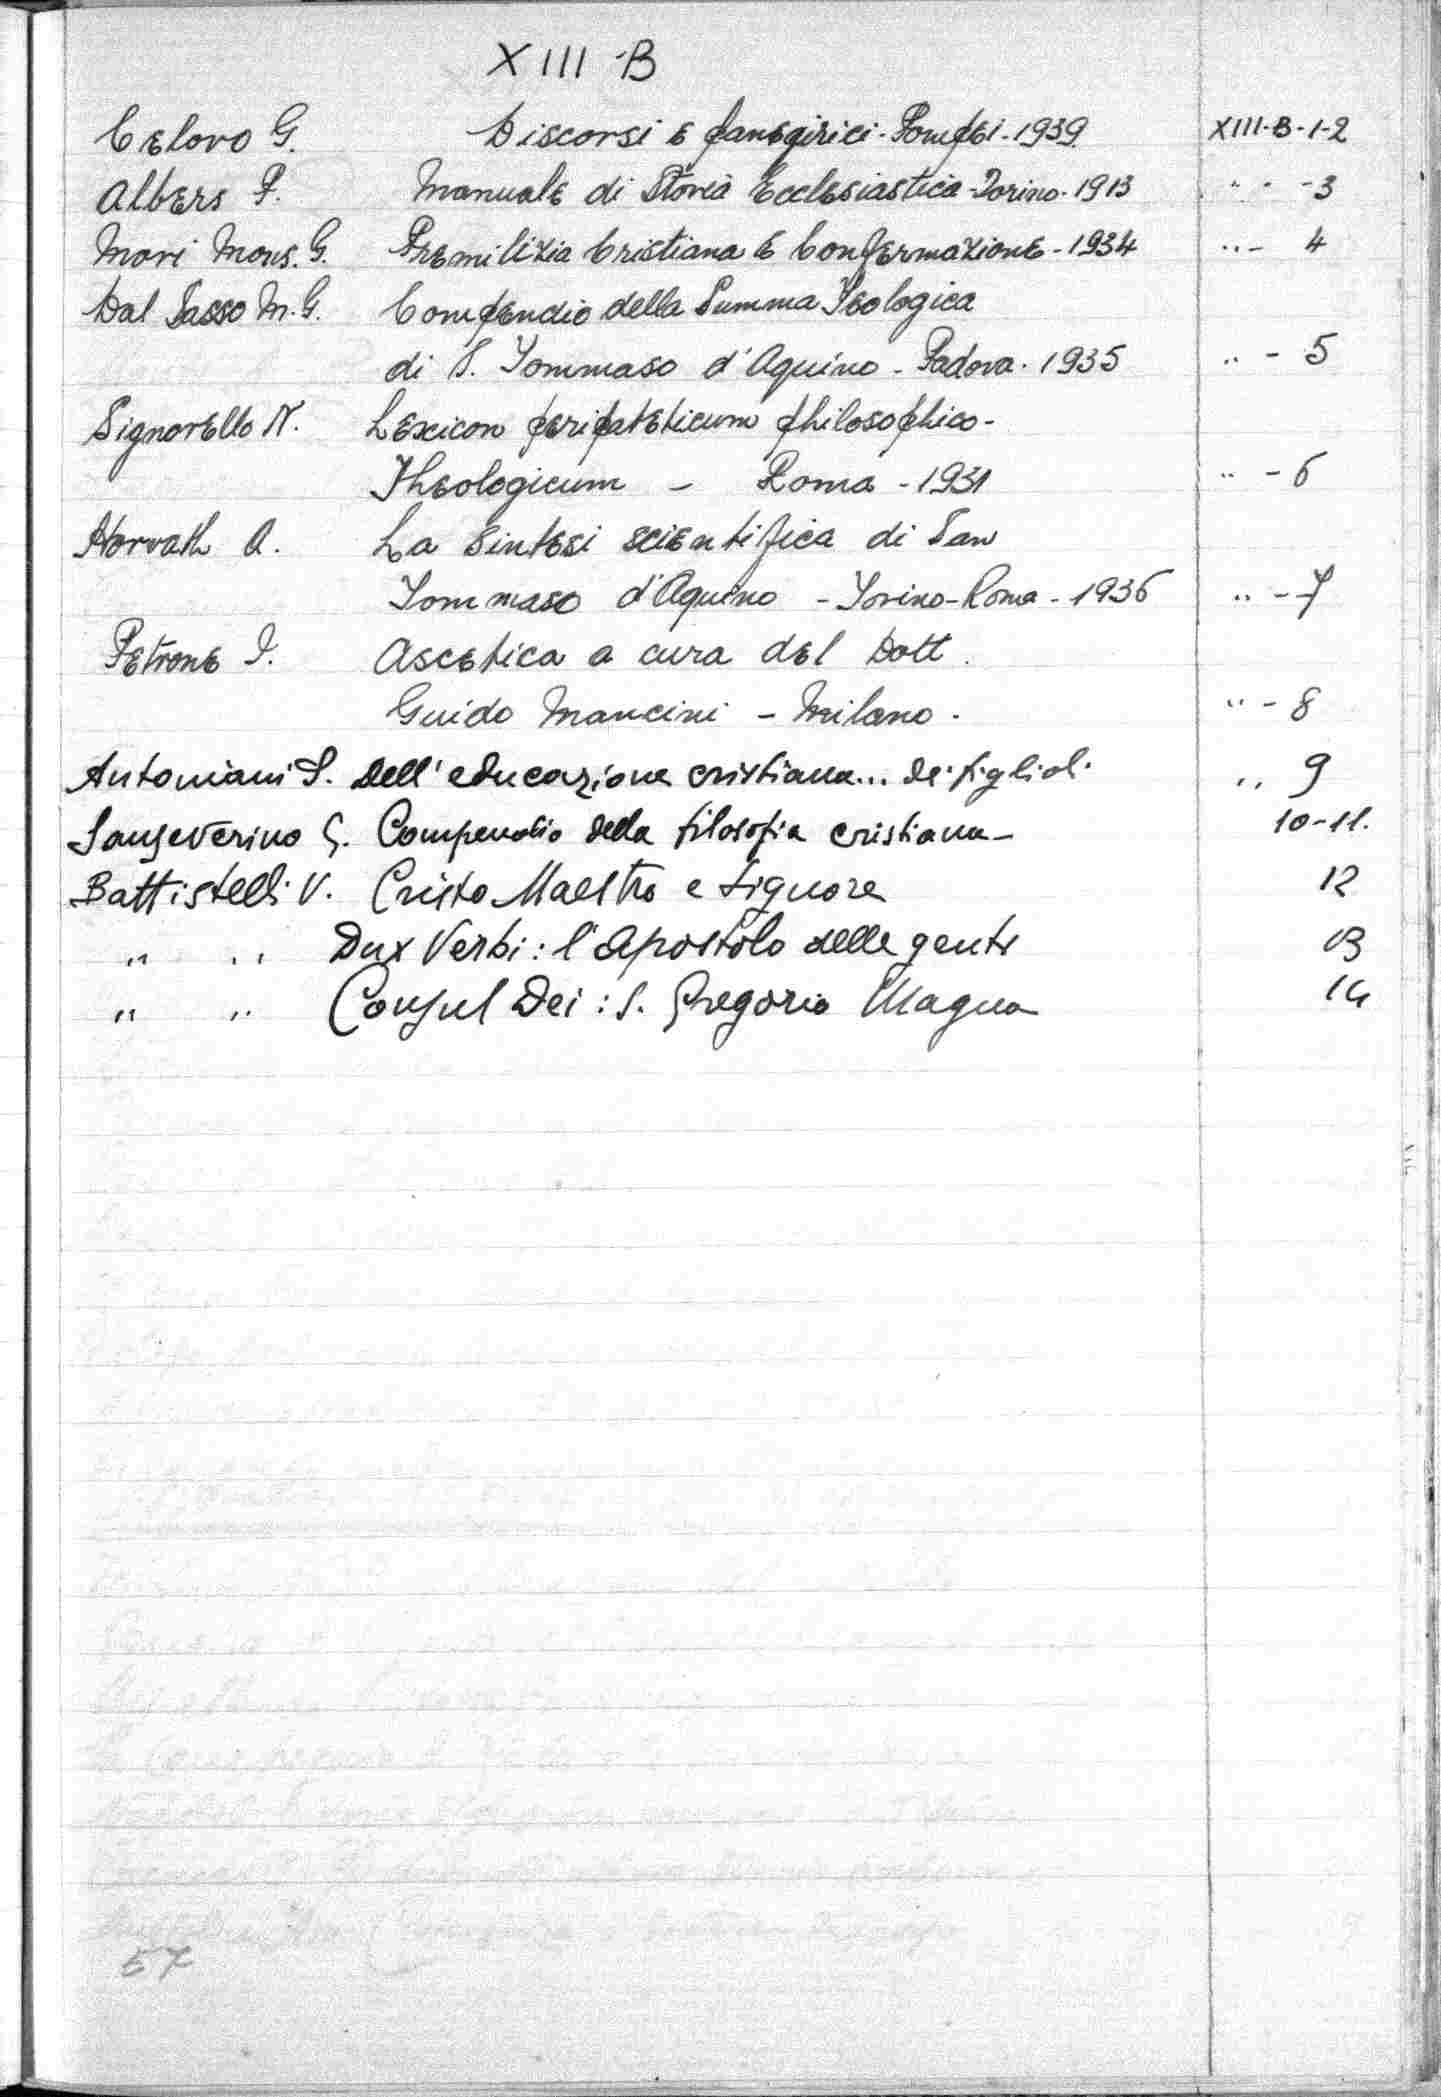 XIII-B
Celoro G. Discorsi e panegirici - Pompei - 1939 XIII-B-1-2
Albers P. Manuale di Storia Ecclesiastica - Torino - 1913 " - - 3
Mori Mons. G. Premilizia Cristiana e Confermazione - 1934 " - 4
Dal Sasso M. G. Compendio della Summa Teologica
di S. Tommaso d'Aquino - Padova. 1935 " - 5
Signorello N. Lexicon peripateticum philosophico-
Theologicum - Roma - 1931 " - 6
Horvath A. La Sintesi scientifica di San
Tommaso d'Aquino - Torino-Roma - 1936 " - 7
Petrone I. Ascetica a cura del Dott.
Guido Mancini - Milano. " - 8
Antoniani S. Dell'educazione cristiana... dei figlioli " 9
Sanseverino G. Compendio della filosofia cristiana - 10-11.
Battistelli V. Cristo Maestro e Signore 12
" " Dux Verbi: l'Apostolo delle genti 13
" " Consul Dei: S. Gregorio Magno 14
57